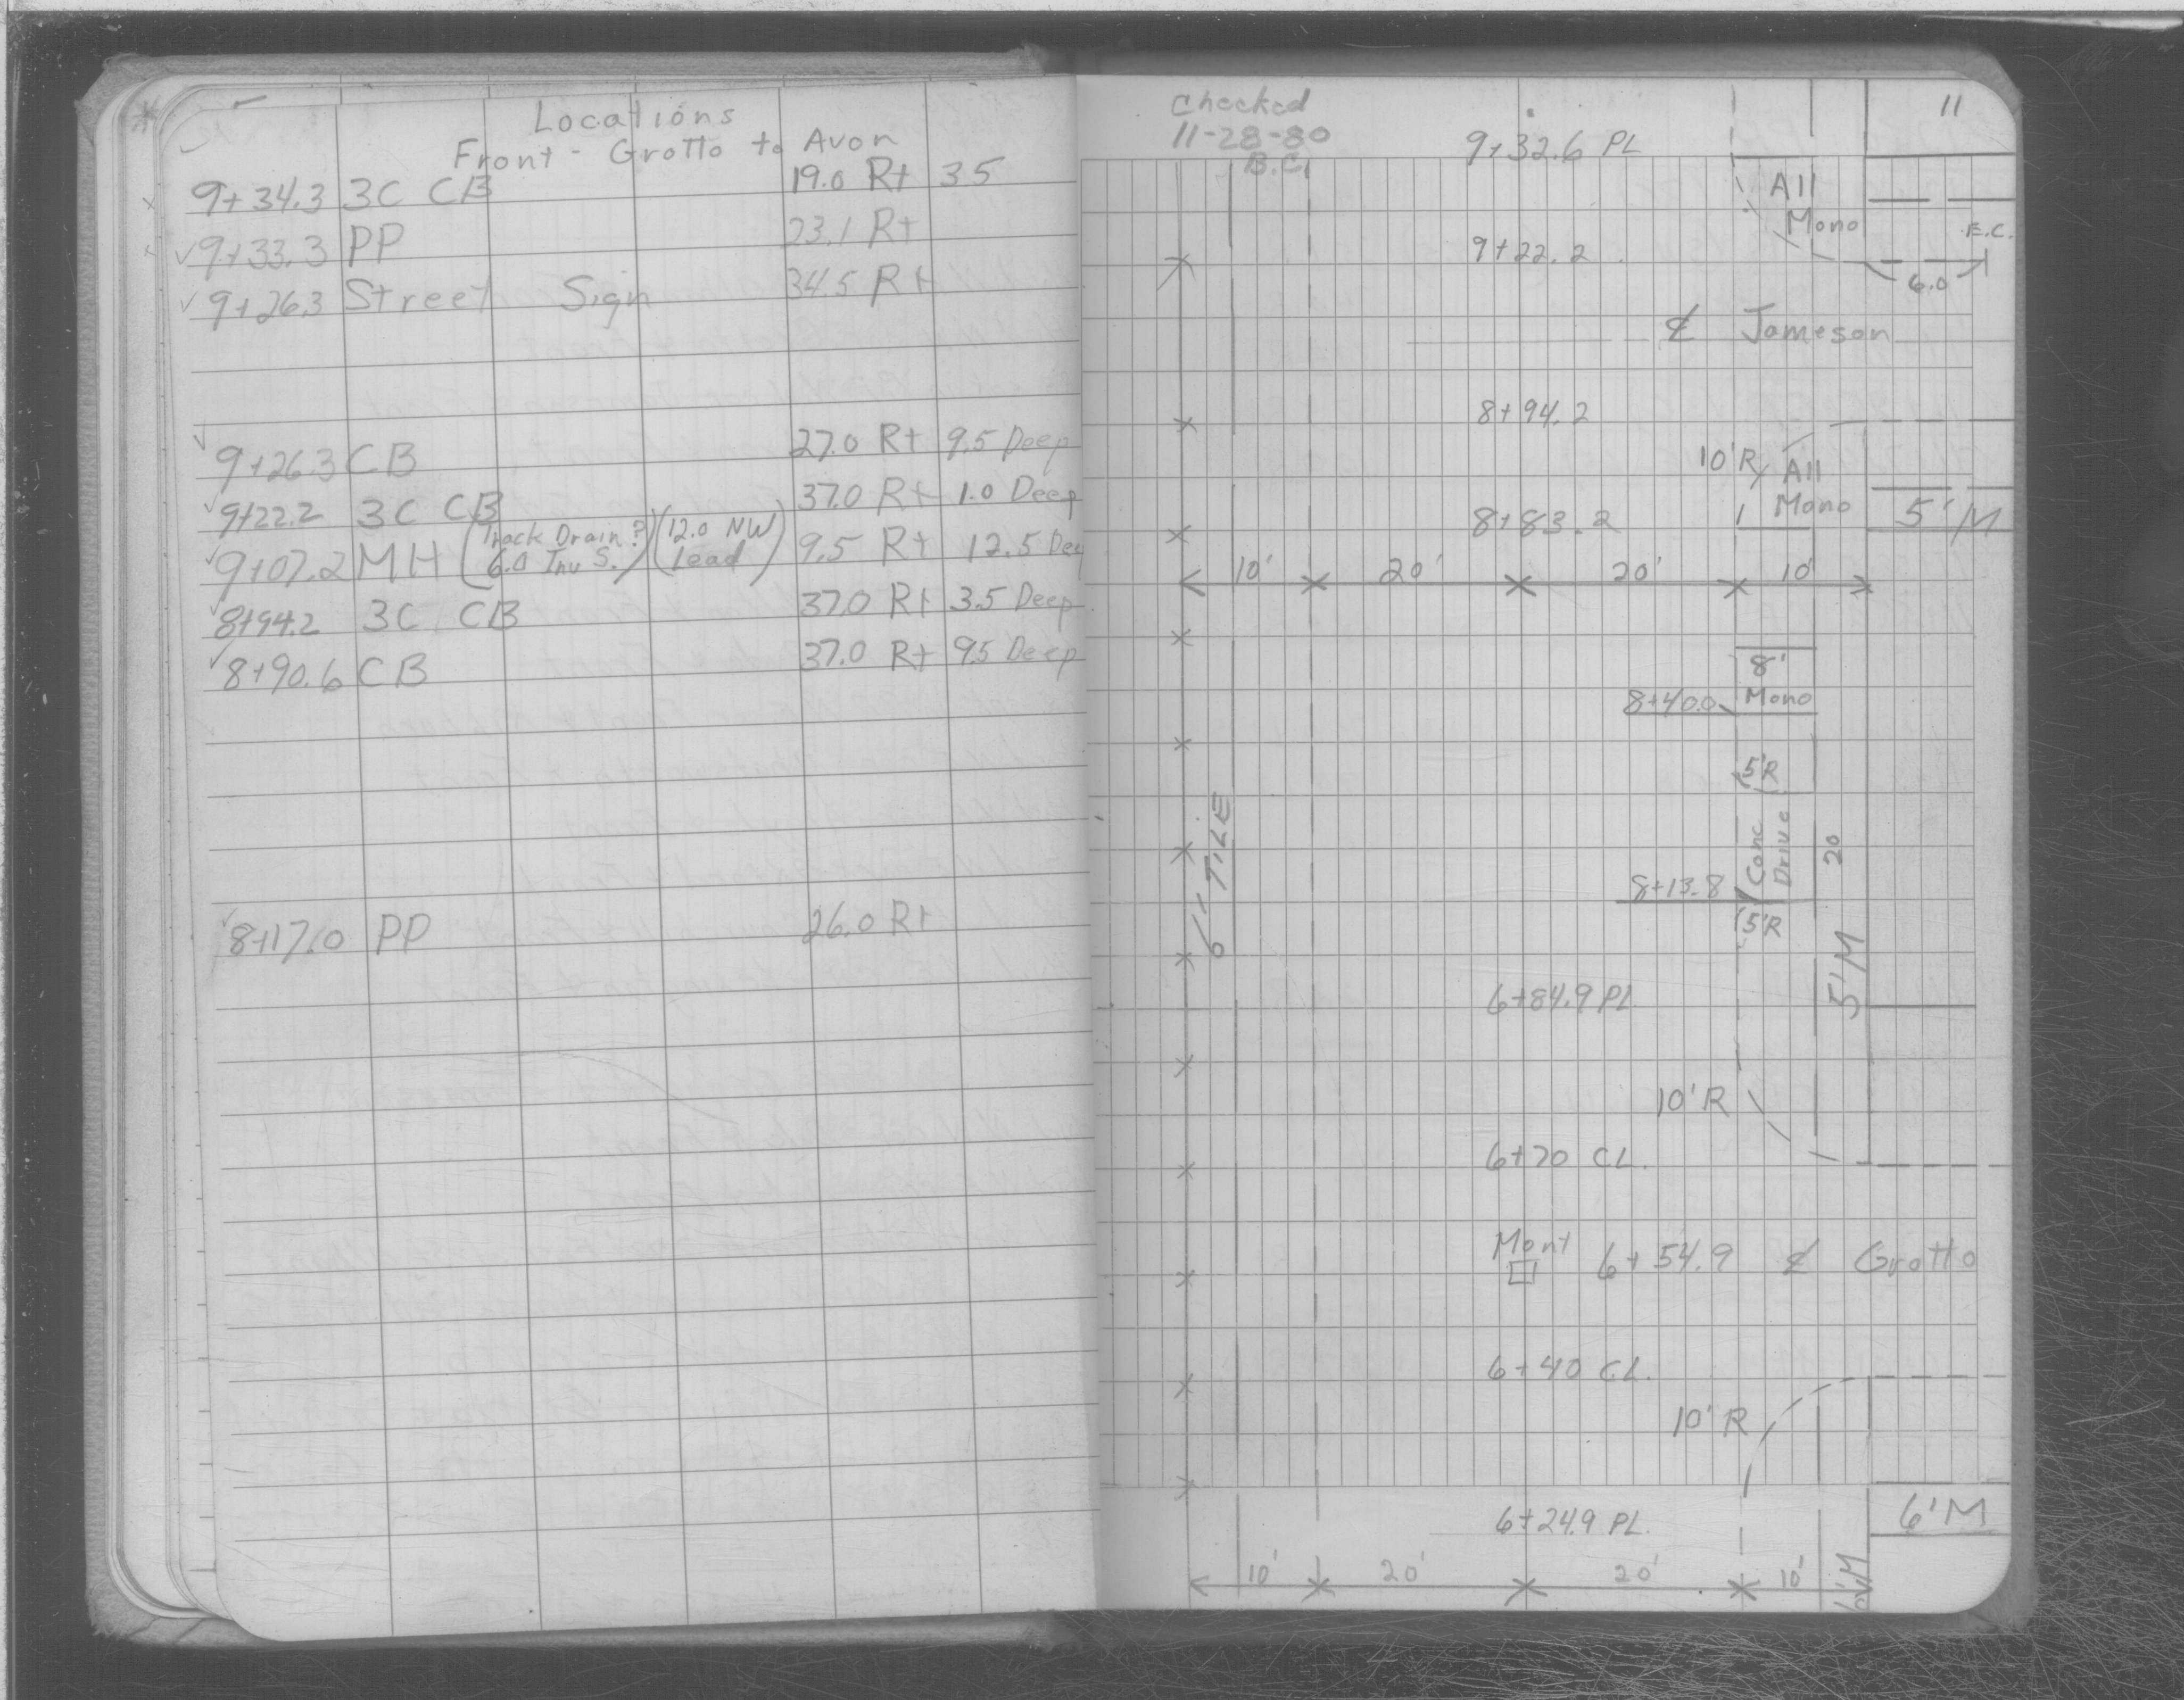 Locations
Front - Grotto to Avon
9+34.3 3C CB 19.0 Rt 3.5
9+33.3 PP 23.1 Rt
9+26.3 Street Sign 34.5 Rt
9+26.3 CB 27.0 Rt 9.5 Deep
9+22.2 3C CB 37.0 Rt 1.0 Deep
9+07.2 MH (Track Drain? 6.0 Inv S.) (12.0 NW Lead) 9.5 Rt 12.5 Dee
8+94.2 3C CB 37.0 Rt 3.5 Deep
8+90.6 CB 37.0 Rt 9.5 Deep
8+17.0 PP 26.0 Rt
11
Checked
11-28-80
B.C.
9+32.6 PL
All
Mono
E.C.
9+22.2
6.0
℄ Jameson
8+94.2
10'R
All
Mono
8+83.2
5'M
10' 20' 20' 10'
8'
Mono
8+40.0
5'R
6" TILE
Conc
Drive
20
8+13.8
5'R
5'M
6+84.9 PL
10'R
6+70 CL.
Mont
6+54.9 ℄ Grotto
6+40 CL.
10'R
6+24.9 PL.
6'M
10' 20' 20' 10'
6'M